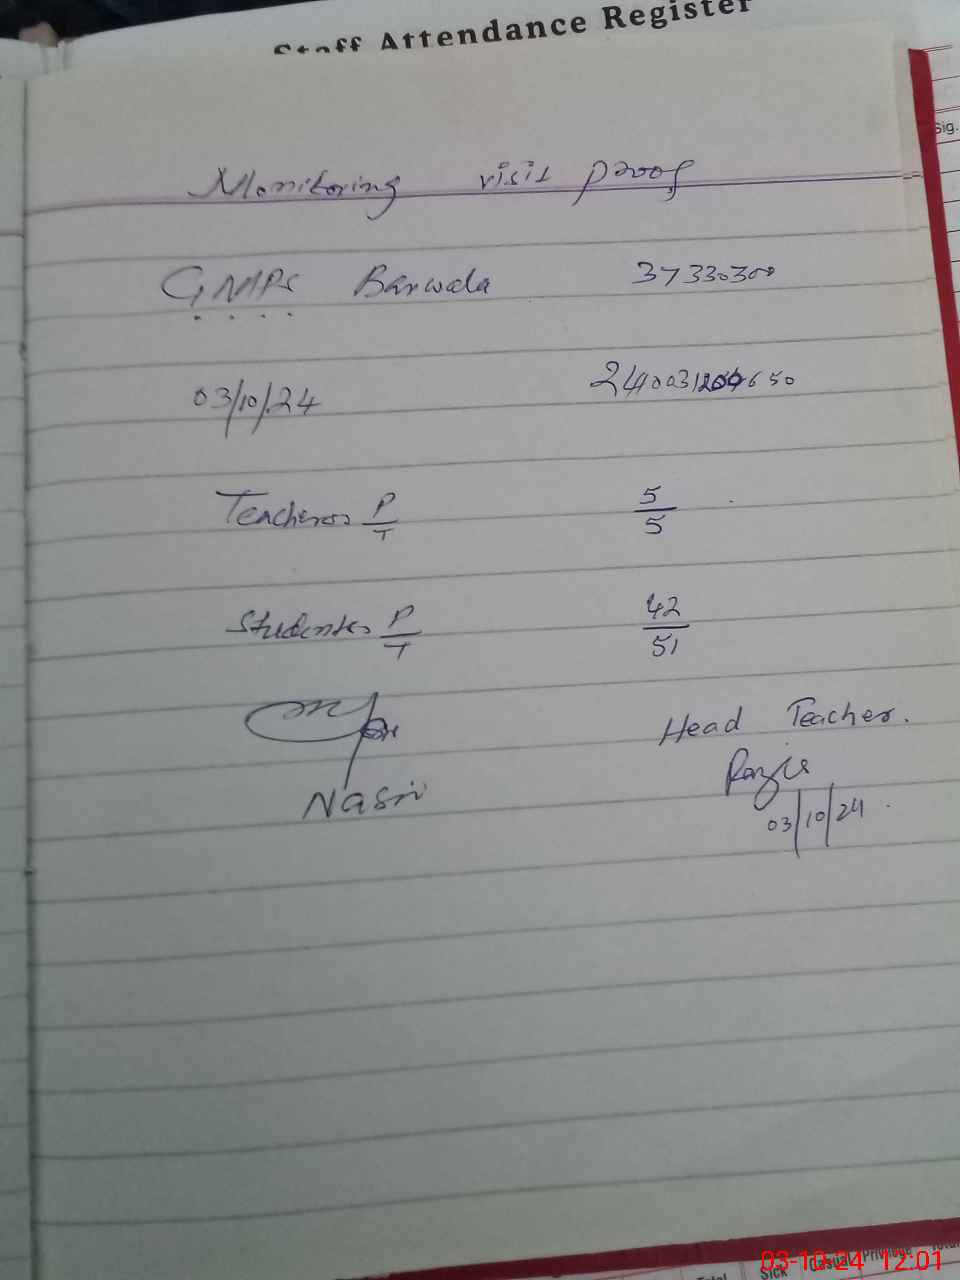 Staff Attendance Register
Sig.
Monitoring visit proof
GMPS Barwala 37330300
03/10/24
Teachers P/T 5/5
Students P/T 42/51
Head Teacher.
Nasir
03/10/24
Sick Casual Privilege
03-10-24 12:01